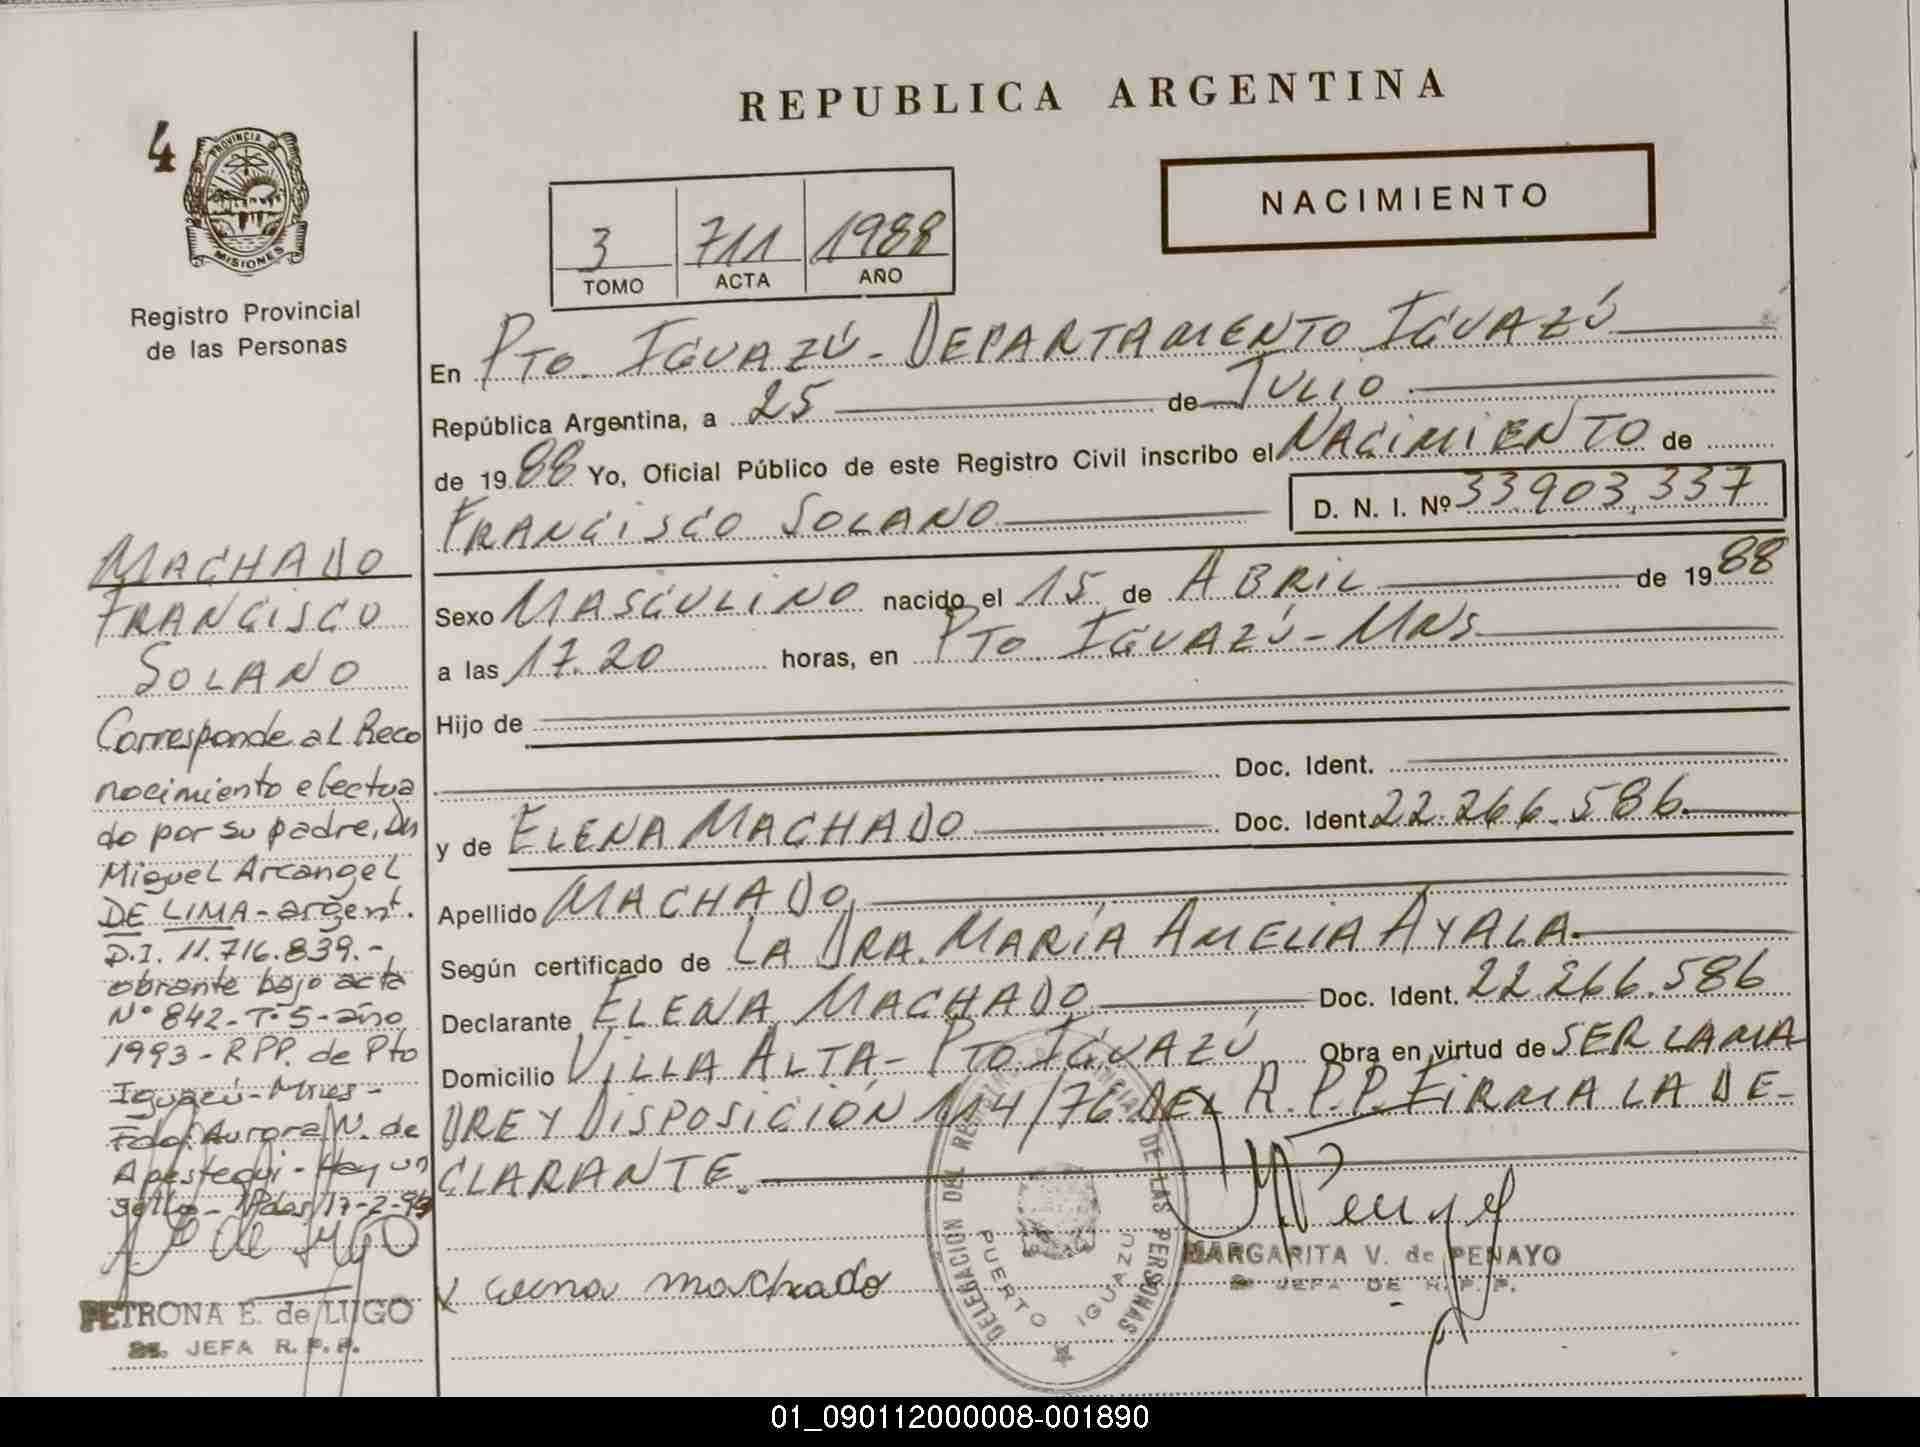 REPUBLICA ARGENTINA
4
PROVINCIA DE
MISIONES
Registro Provincial
de las Personas
NACIMIENTO
3 711 1988
TOMO ACTA AÑO
En PTO. IGUAZÚ - DEPARTAMENTO IGUAZÚ
República Argentina, a 25 de JULIO
de 1988 Yo, Oficial Público de este Registro Civil inscribo el NACIMIENTO de
FRANCISCO SOLANO D. N. I. Nº 33.903.337
Sexo MASCULINO nacido el 15 de ABRIL de 1988
a las 17.20 horas, en PTO IGUAZÚ - MNS
Hijo de
Doc. Ident.
y de ELENA MACHADO Doc. Ident. 22.266.586
Apellido MACHADO
Según certificado de LA DRA. MARÍA AMELIA AYALA
Declarante ELENA MACHADO Doc. Ident. 22.266.586
Domicilio VILLA ALTA - PTO. IGUAZÚ Obra en virtud de SER LA MA
DRE Y DISPOSICIÓN 114/76 DEL R.P.P. FIRMA LA DE-
CLARANTE.
MACHADO
FRANCISCO
SOLANO
Corresponde al Reco
nocimiento efectua
do por su padre, Dn
Miguel Arcangel
DE LIMA - argent.
D.I. 11.716.839.-
obrante bajo acta
Nº 842 - T. 5 - año
1993 - RPP. de Pto
Iguazú - Mnes -
Fdo: Aurora N. de
Apestegui - Hay un
sello - Pdas 17-2-94
PETRONA E. de LUGO
JEFA R.P.P.
machado
DELEGACION DEL REGISTRO PROVINCIAL DE LAS PERSONAS
PUERTO IGUAZU
MARGARITA V. de PENAYO
JEFA DE R.P.P.
01_090112000008-001890